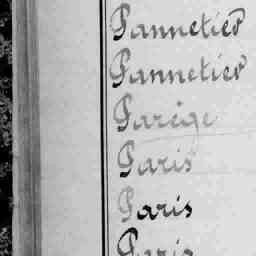 Pannetier
Pannetier
Parège
Paris
Paris
Paris